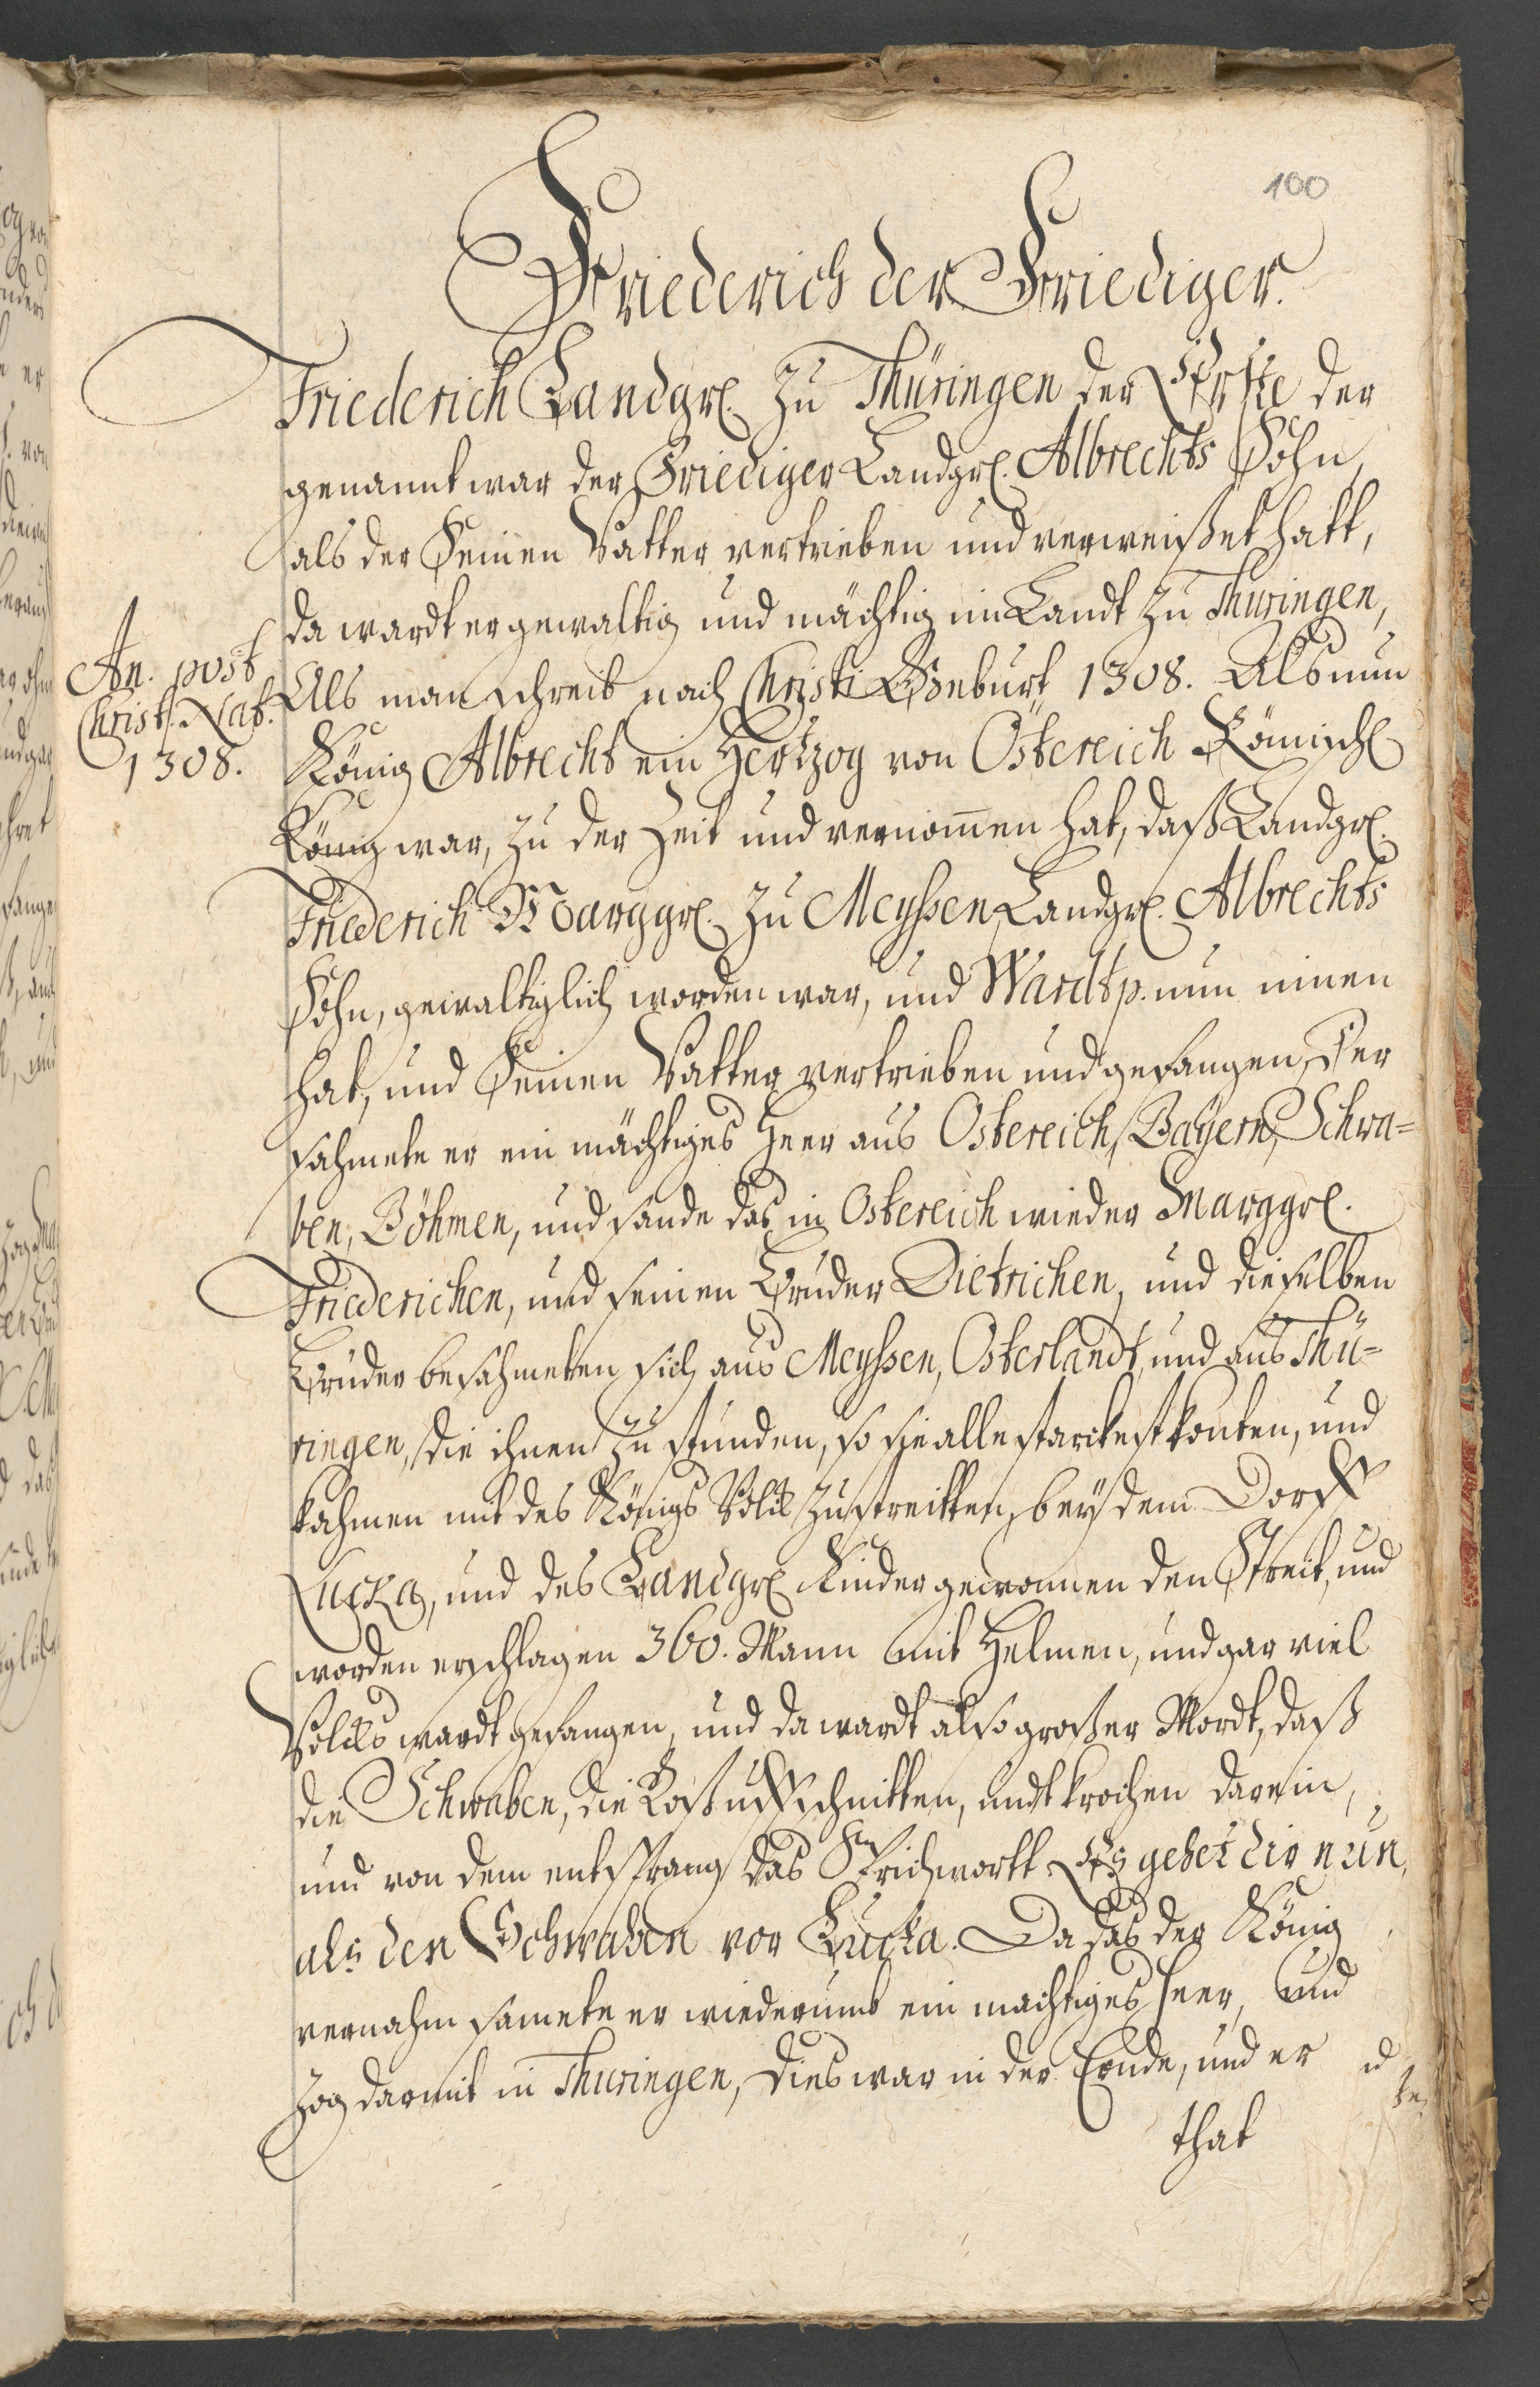 100
Friederich der Friediger.
Friederich Landgr. zu Thüringen der Erste der
genannt war der Friediger Landgr. Albrechts Sohn,
als der Seinen Vatter vertrieben und verweißet hatt,
da wardt er gewaltig und mächtig im Landt zu Thuringen,
An. post
Christ. Nat.
1308.
Als man schreib nach Christi Geburt 1308. Als nun
König Albrecht ein Hertzog von Östereich Römisch
König war, zu der Zeit und vernom̄en hat, daß Landgr.
Friederich Marggr. zu Meyssen Landgr. Albrechts
Sohn, gewaltiglich worden war, und Wardtp. nun innen
hat, und Seinen Vatter vertrieben und gefangen, Der
sahmete er ein mächtiges Heer aus Ostereich, Bayern, Schwa=
ben, Böhmen, und sande das in Ostereich wieder Marggr.
Friederichen, und seinen Bruder Dietrichen, und dieselben
Brüder besahmeten sich aus Meyssen, Osterlandt, und aus Thü=
ringen, die ihnen zu stunden, so sie alle starckest konten, und
kahmen mit des Königs Volck zu streitten, bey dem Dorff
Lucka, und des Landgr. Kinder gewonnen den Streit, und
worden erschlagen 360. Mann mit Helmen, und gar viel
Volcks wardt gefangen, und da wardt also großer Mordt, daß
die Schwaben, die Roß uffschnitten, undt krochen darein,
und von dem entsprang das Sprichwortt Es gehet dir nun,
als den Schwaben vor Lucka. Da das der König
vernahm samete er wiederumb ein machtiges heer, und
zog darmit in Thuringen, dies war in der Ernde, und er
that